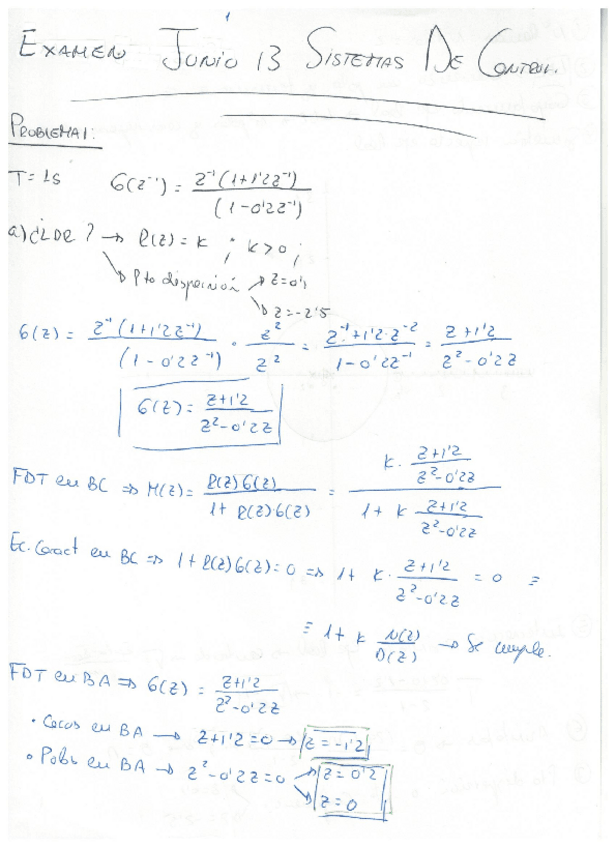 1
EXAMEN JUNIO 13 SISTEMAS DE CONTROL.
PROBLEMA 1:
T = 1s G(z⁻¹) = z⁻¹(1+1'2z⁻¹) / (1-0'2z⁻¹)
a) ¿LDR? → R(z) = K ; K>0 ;
↘ Pto dispersión → z=0'1
↘ z=-2'5
G(z) = z⁻¹(1+1'2z⁻¹) / (1-0'2z⁻¹) · z²/z² = z⁻¹+1'2·z⁻² / 1-0'2z⁻¹ = z+1'2 / z²-0'2z
G(z) = z+1'2 / z²-0'2z
FDT en BC ⇒ M(z) = R(z)G(z) / 1+R(z)G(z) = K · z+1'2 / z²-0'2z / 1+K z+1'2 / z²-0'2z
Ec. Caract en BC ⇒ 1+R(z)G(z)=0 ⇒ 1+ K· z+1'2 / z²-0'2z = 0 ≡
≡ 1+K N(z)/D(z) → Se cumple.
FDT en BA ⇒ G(z) = z+1'2 / z²-0'2z
· Ceros en BA → z+1'2=0 → z=-1'2
· Polos en BA → z²-0'2z=0 → z=0'2
↘ z=0